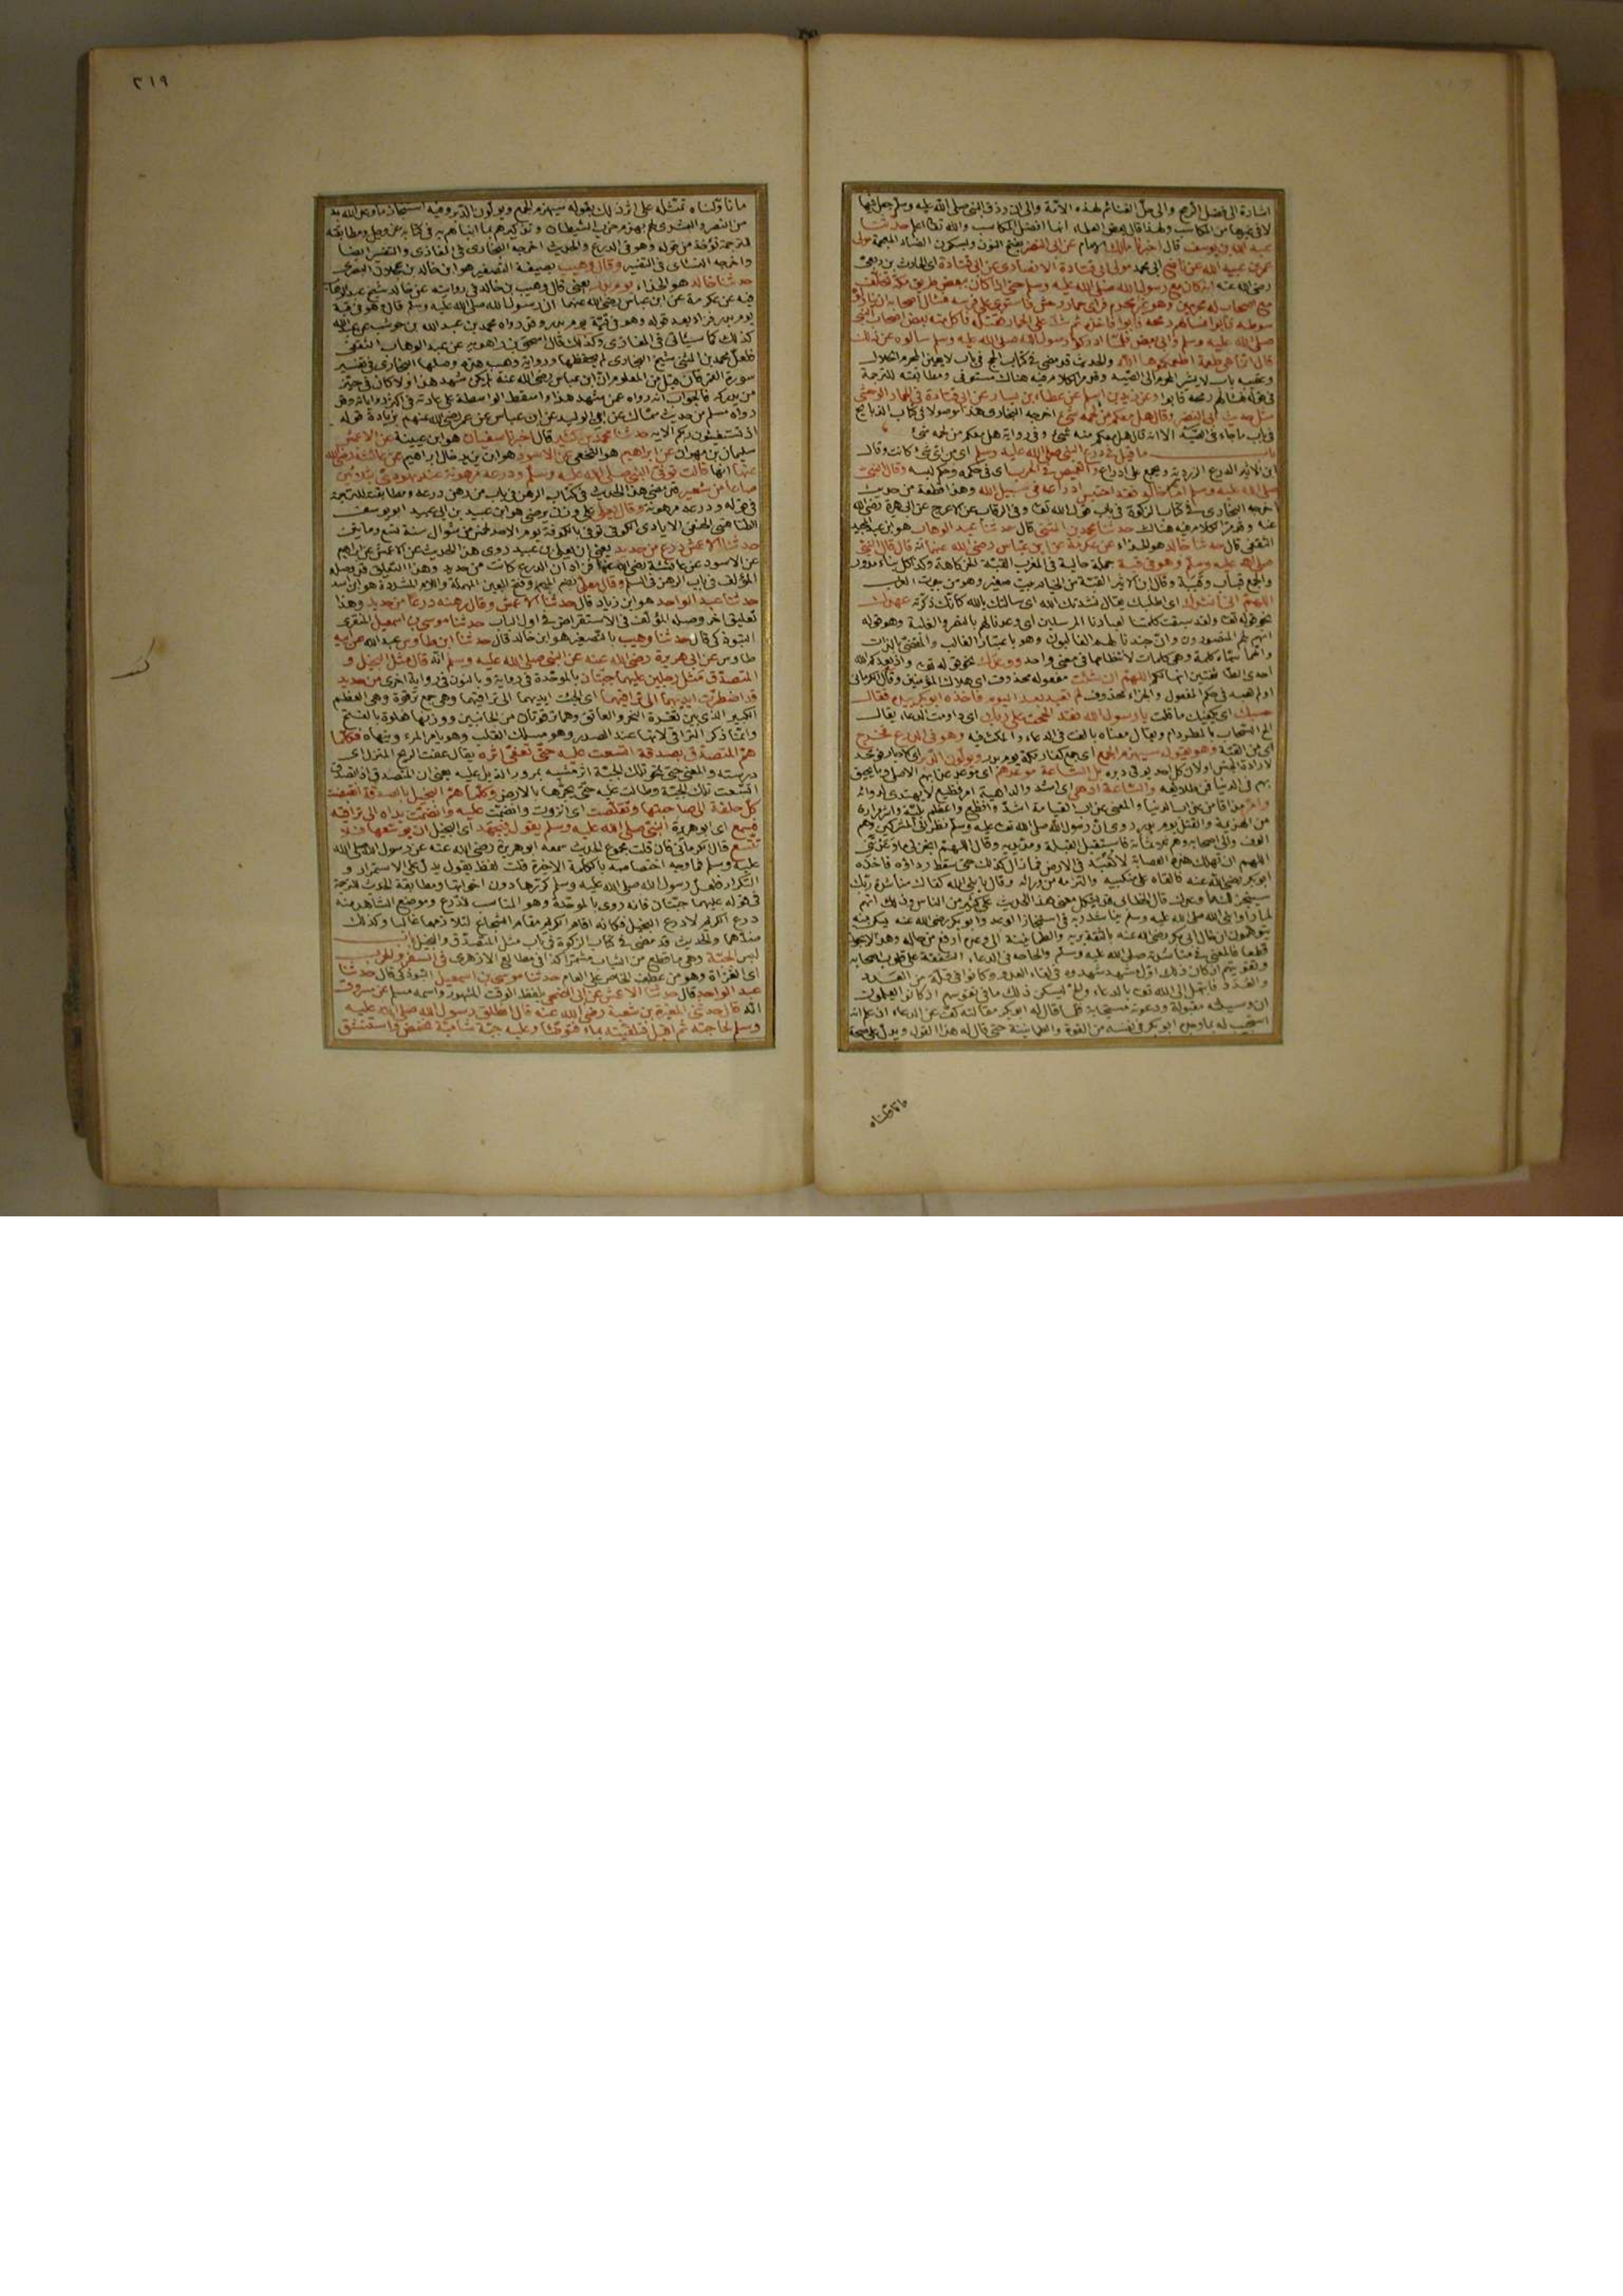 اشارة الى فضل الرمح والى حل الغنائم لهذه الامة والى ان رزق النبي صلى الله عليه وسلم جعل فيها
لا في غيرها من المكاسب ولهذا قال بعض العلماء انها افضل المكاسب والله تعالى اعلم حدثنا
عبد الله بن يوسف قال اخبرنا مالك الامام عن ابي النضر بفتح النون وبسكون الضاد المعجمة مولى
عمر بن عبيد الله عن نافع ابي محمد مولى ابي قتادة الانصاري عن ابي قتادة اي الحارث بن ربعي
رضي الله عنه انه كان مع رسول الله صلى الله عليه وسلم حتى اذا كان ببعض طريق مكة تخلف
مع اصحاب له محرمين وهو غير محرم فراى حمار وحش فاستوى على فرسه فسال اصحابه ان يناولوه
سوطه فابوا فسالهم رمحه فابوا فاخذه ثم شد على الحمار فقتله فاكل منه بعض اصحاب النبي
صلى الله عليه وسلم وابى بعض فلما ادركوا رسول الله صلى الله عليه وسلم سالوه عن ذلك
قال انما هي طعمة اطعمكموها الله والحديث قد مضى في كتاب الحج في باب لا يعين المحرم الحلال
وعقيبه باب لا يشير المحرم الى الصيد وقد مر الكلام فيه هناك مستوفى ومطابقته للترجمة
في قوله فسالهم رمحه فابوا وعن زيد بن اسلم عن عطاء بن يسار عن ابي قتادة في الحمار الوحشي
مثل حديث ابي النضر وقال هل معكم من لحمه شيء اخرجه البخاري هذا موصولا في كتاب الذبايح
في باب ما جاء في الصيد الا انه قال هل معكم منه شيء وفي رواية هل معكم من لحمه شيء
باب ما قيل في درع النبي صلى الله عليه وسلم اي من اي شيء كانت وقال
ابن الاثير الدرع الزردية ويجمع على ادراع والقميص في الحرب اي في حكمه وحكم لبسه وقال النبي
صلى الله عليه وسلم اما خالد فقد احتبس ادراعه في سبيل الله وهذا قطعة من حديث
اخرجه البخاري في كتاب الزكوة في باب قول الله تعالى وفي الرقاب عن الاعرج عن ابي هريرة رضي الله
عنه وقد مر الكلام فيه هناك حدثنا محمد بن المثنى قال حدثنا عبد الوهاب هو ابن عبد المجيد
الثقفي قال حدثنا خالد هو الحذاء عن عكرمة عن ابن عباس رضي الله عنهما انه قال قال النبي
صلى الله عليه وسلم وهو في قبة جملة حالية في المغرب القبة الخركاهة وكذا كل بناء مدور
والجمع قباب وقببة وقال ابن الاثير القبة من الخيام بيت صغير وهو من بيوت العرب
اللهم اني انشدك اي اطلبك يقال نشدتك الله اي سالتك بالله كانك ذكرته عهدك
نحو قوله تعالى ولقد سبقت كلمتنا لعبادنا المرسلين اي وعدنا لهم بالنصر والغلبة وهو قوله
انهم لهم المنصورون وان جندنا لهم الغالبون وهو باعتبار الغالب والمقضي بالذات
وانما سماه كلمة وهي كلمات لانتظامها في معنى واحد ووعدك نحو قوله تعالى واذ يعدكم الله
احدى الطائفتين انها لكم اللهم ان شئت مفعوله محذوف اي هلاك المؤمنين وقال الكرماني
اولم تعبد في حكم المفعول والجزاء محذوف لم تعبد بعد اليوم فاخذه ابو بكر بيده فقال
حسبك اي يكفيك ما قلت يا رسول الله فقد الححت على ربك اي داومت الدعاء يقال
الح السحاب بالمطر دام ويقال معناه بالغت في الدعاء واكثرت فيه وهو في الدرع فخرج
اي من القبة وهو يقول سيهزم الجمع اي جمع كفار مكة يوم بدر ويولون الدبر اي الادبار فوحد
لارادة الجنس او لان كل احد يولي دبره بل الساعة موعدهم اي موعد عذابهم الاصل وما يحيق
بهم في الدنيا فمن طلايعه والساعة ادهى اي اشد والداهية امر فظيع لا يهتدى لدوائه
وامر مذاقا من عذاب الدنيا والمعنى عذاب القيامة اشد وافظع واعظم بلية واشد مرارة
من الهزيمة والقتل يوم بدر روى ان رسول الله صلى الله تعالى عليه وسلم نظر الى المشركين وهم
الوف والى اصحابه وهم ثلاثمائة فاستقبل القبلة ومد يديه وقال اللهم انجز لي ما وعدتني
اللهم ان تهلك هذه العصابة لا تعبد في الارض فما زال كذلك حتى سقط رداؤه فاخذه
ابو بكر رضي الله عنه فالقاه على منكبيه والتزمه من ورائه وقال يا نبي الله كفاك مناشدة ربك
سينجز لك ما وعدك قال الخطابي قد يشكل معنى هذا الحديث على كثير من الناس وذلك انهم
لما راوا نبي الله صلى الله عليه وسلم يناشد ربه في استنجاز الوعد وابو بكر رضي الله عنه يسكن منه
يتوهمون ان حال ابي بكر رضي الله عنه بالثقة بربه والطمانينة الى وعده ارفع من حاله وهذا لا يجوز
قطعا فالمعنى في مناشدته صلى الله عليه وسلم والحاحه في الدعاء الشفقة على قلوب اصحابه
وتقويتهم اذ كان ذلك اول مشهد شهدوه في لقاء العدو وكانوا في قلة من العَدد
والعُدد فابتهل الى الله تعالى بالدعاء والح ليسكن ذلك ما في نفوسهم اذ كانوا يعلمون
ان وسيلته مقبولة ودعوته مستجابة فلما قال له ابو بكر مقالته كف عن الدعاء اذ علم انه
استجيب له بما وجد ابو بكر في نفسه من القوة والطمانينة حتى قال له هذا القول ويدل على صحة
ما تاولناه
٣١٩
ما تاولناه تمثله على اثر ذلك بقوله سيهزم الجمع ويولون الدبر وفيه استنجاز ما وعد الله به
من النصر والبشرى لهم بهزم حزب الشيطان وتذكيرهم بما انباهم به في كتابه عز وجل ومطابقته
للترجمة تؤخذ من قوله وهو في الدرع والحديث اخرجه البخاري في المغازي والتفسير ايضا
واخرجه النسائي في التفسير وقال وهيب بصيغة التصغير هو ابن خالد بن عجلان البصري
حدثنا خالد هو الحذاء يوم بدر يعني قال وهيب بن خالد في روايته عن خالد شيخ عبد الوهاب
فيه عن عكرمة عن ابن عباس رضي الله عنهما ان رسول الله صلى الله عليه وسلم قال وهو في قبة
يوم بدر فزاد بعد قوله وهو في قبة يوم بدر وقد رواه محمد بن عبد الله بن حوشب عن عبد الله
كذلك كما سياتي في المغازي وكذلك قال اسحق بن راهويه عن عبد الوهاب الثقفي
فلعل محمد بن المثنى شيخ البخاري لم يحفظها ورواية وهيب هذه وصلها البخاري في تفسير
سورة القمر فان قيل من المعلوم ان ابن عباس رضي الله عنه لم يكن شهد هذا ولا كان في حيز
من يدركه فالجواب انه رواه عمن شهد هذا واسقط الواسطة على عادته في اكثر رواياته وقد
رواه مسلم من حديث سماك عن ابي الوليد عن ابن عباس عن عمر رضي الله عنهم بزيادة قوله
اذ تستغيثون ربكم الآية حدثنا محمد بن كثير قال اخبرنا سفيان هو ابن عيينة عن الاعمش
سليمان بن مهران عن ابراهيم هو النخعي عن الاسود هو ابن يزيد خال ابراهيم عن عائشة رضي الله
عنها انها قالت توفي النبي صلى الله عليه وسلم ودرعه مرهونة عند يهودي بثلاثين
صاعا من شعير قد مضى هذا الحديث في كتاب الرهن في باب من رهن درعه ومطابقته للترجمة
في قوله ودرعه مرهونة وقال يعلى على وزن يرضى هو ابن عبيد بن ابي عبيد ابو يوسف
الطنافسي الحنفي الايادي الكوفي توفي بالكوفة يوم الاحد لخمس من شوال سنة تسع ومائتين
حدثنا الاعمش درع من حديد يعني ان يعلى بن عبيد روى هذا الحديث عن الاعمش عن ابراهيم
عن الاسود عن عائشة رضي الله عنها فزاد ان الدرع كانت من حديد وهذا التعليق قد وصله
المؤلف في باب الرهن في السلم وقال معلى بضم الميم وفتح العين المهملة واللام المشددة هو ابن اسد
حدثنا عبد الواحد هو ابن زياد قال حدثنا الاعمش وقال رهنه درعا من حديد وهذا
تعليق آخر وصله المؤلف في الاستقراض في اول الباب حدثنا موسى بن اسمعيل المنقري
التبوذكي قال حدثنا وهيب بالتصغير هو ابن خالد قال حدثنا ابن طاوس عبد الله عن ابيه
طاوس عن ابي هريرة رضي الله عنه عن النبي صلى الله عليه وسلم انه قال مثل البخيل و
المتصدق مثل رجلين عليهما جبتان بالموحدة في رواية وبالنون في رواية اخرى من حديد
قد اضطرت ايديهما الى تراقيهما اي الجئت ايديهما الى تراقيهما وهي جمع ترقوة وهي العظم
الكبير الذي بين ثغرة النحر والعاتق وهما ترقوتان من الجانبين ووزنها فعلوة بالفتح
وانما ذكر التراقي لانها عند الصدر وهو مسلك القلب وهو يامر المرء وينهاه فكلما
هم المتصدق بصدقة اتسعت عليه حتى تعفي اثره يقال عفت الريح المنزل اي
درسته والمعنى حتى تمحي تلك الجبة اثر مشيه بمرور الذيل عليه يعني ان المتصدق اذا تصدق
اتسعت تلك الجبة وطالت عليه حتى يجرها بالارض وكلما هم البخيل بالصدقة انقبضت
كل حلقة الى صاحبتها وتقلصت اي انزوت وانضمت عليه وانضمت يداه الى تراقيه
فسمع اي ابو هريرة النبي صلى الله عليه وسلم يقول فيجتهد اي البخيل ان يوسعها فلا
تتسع قال الكرماني فان قلت مجموع الحديث سمعه ابو هريرة رضي الله عنه عن رسول الله صلى الله
عليه وسلم فما وجه اختصاصه بالكلمة الاخيرة قلت لفظ يقول يدل على الاستمرار و
التكرار فلعل رسول الله صلى الله عليه وسلم كررها دون اخواتها ومطابقة الحديث للترجمة
في قوله عليهما جبتان فانه روي بالموحدة وهو المناسب للدرع وموضع الشاهد منه
درع الكريم لا درع البخيل فكانه اقام الكريم مقام الشجاع لتلازمهما غالبا وكذلك
ضدهما والحديث قد مضى في كتاب الزكوة في باب مثل المتصدق والبخيل باب
لبس الجبة وهي ما قطع من الثياب مشمرا كذا في مطالع الازهري في السفر والحرب
اي الغزاة وهو من عطف الخاص على العام حدثنا موسى بن اسمعيل التبوذكي قال حدثنا
عبد الواحد قال حدثنا الاعمش عن ابي الضحى بلفظ الوقت المشهور واسمه مسلم عن مسروق
انه قال حدثني المغيرة بن شعبة رضي الله عنه قال انطلق رسول الله صلى الله عليه
وسلم لحاجته ثم اقبل فتلقيته بماء فتوضأ وعليه جبة شامية فمضمض واستنشق